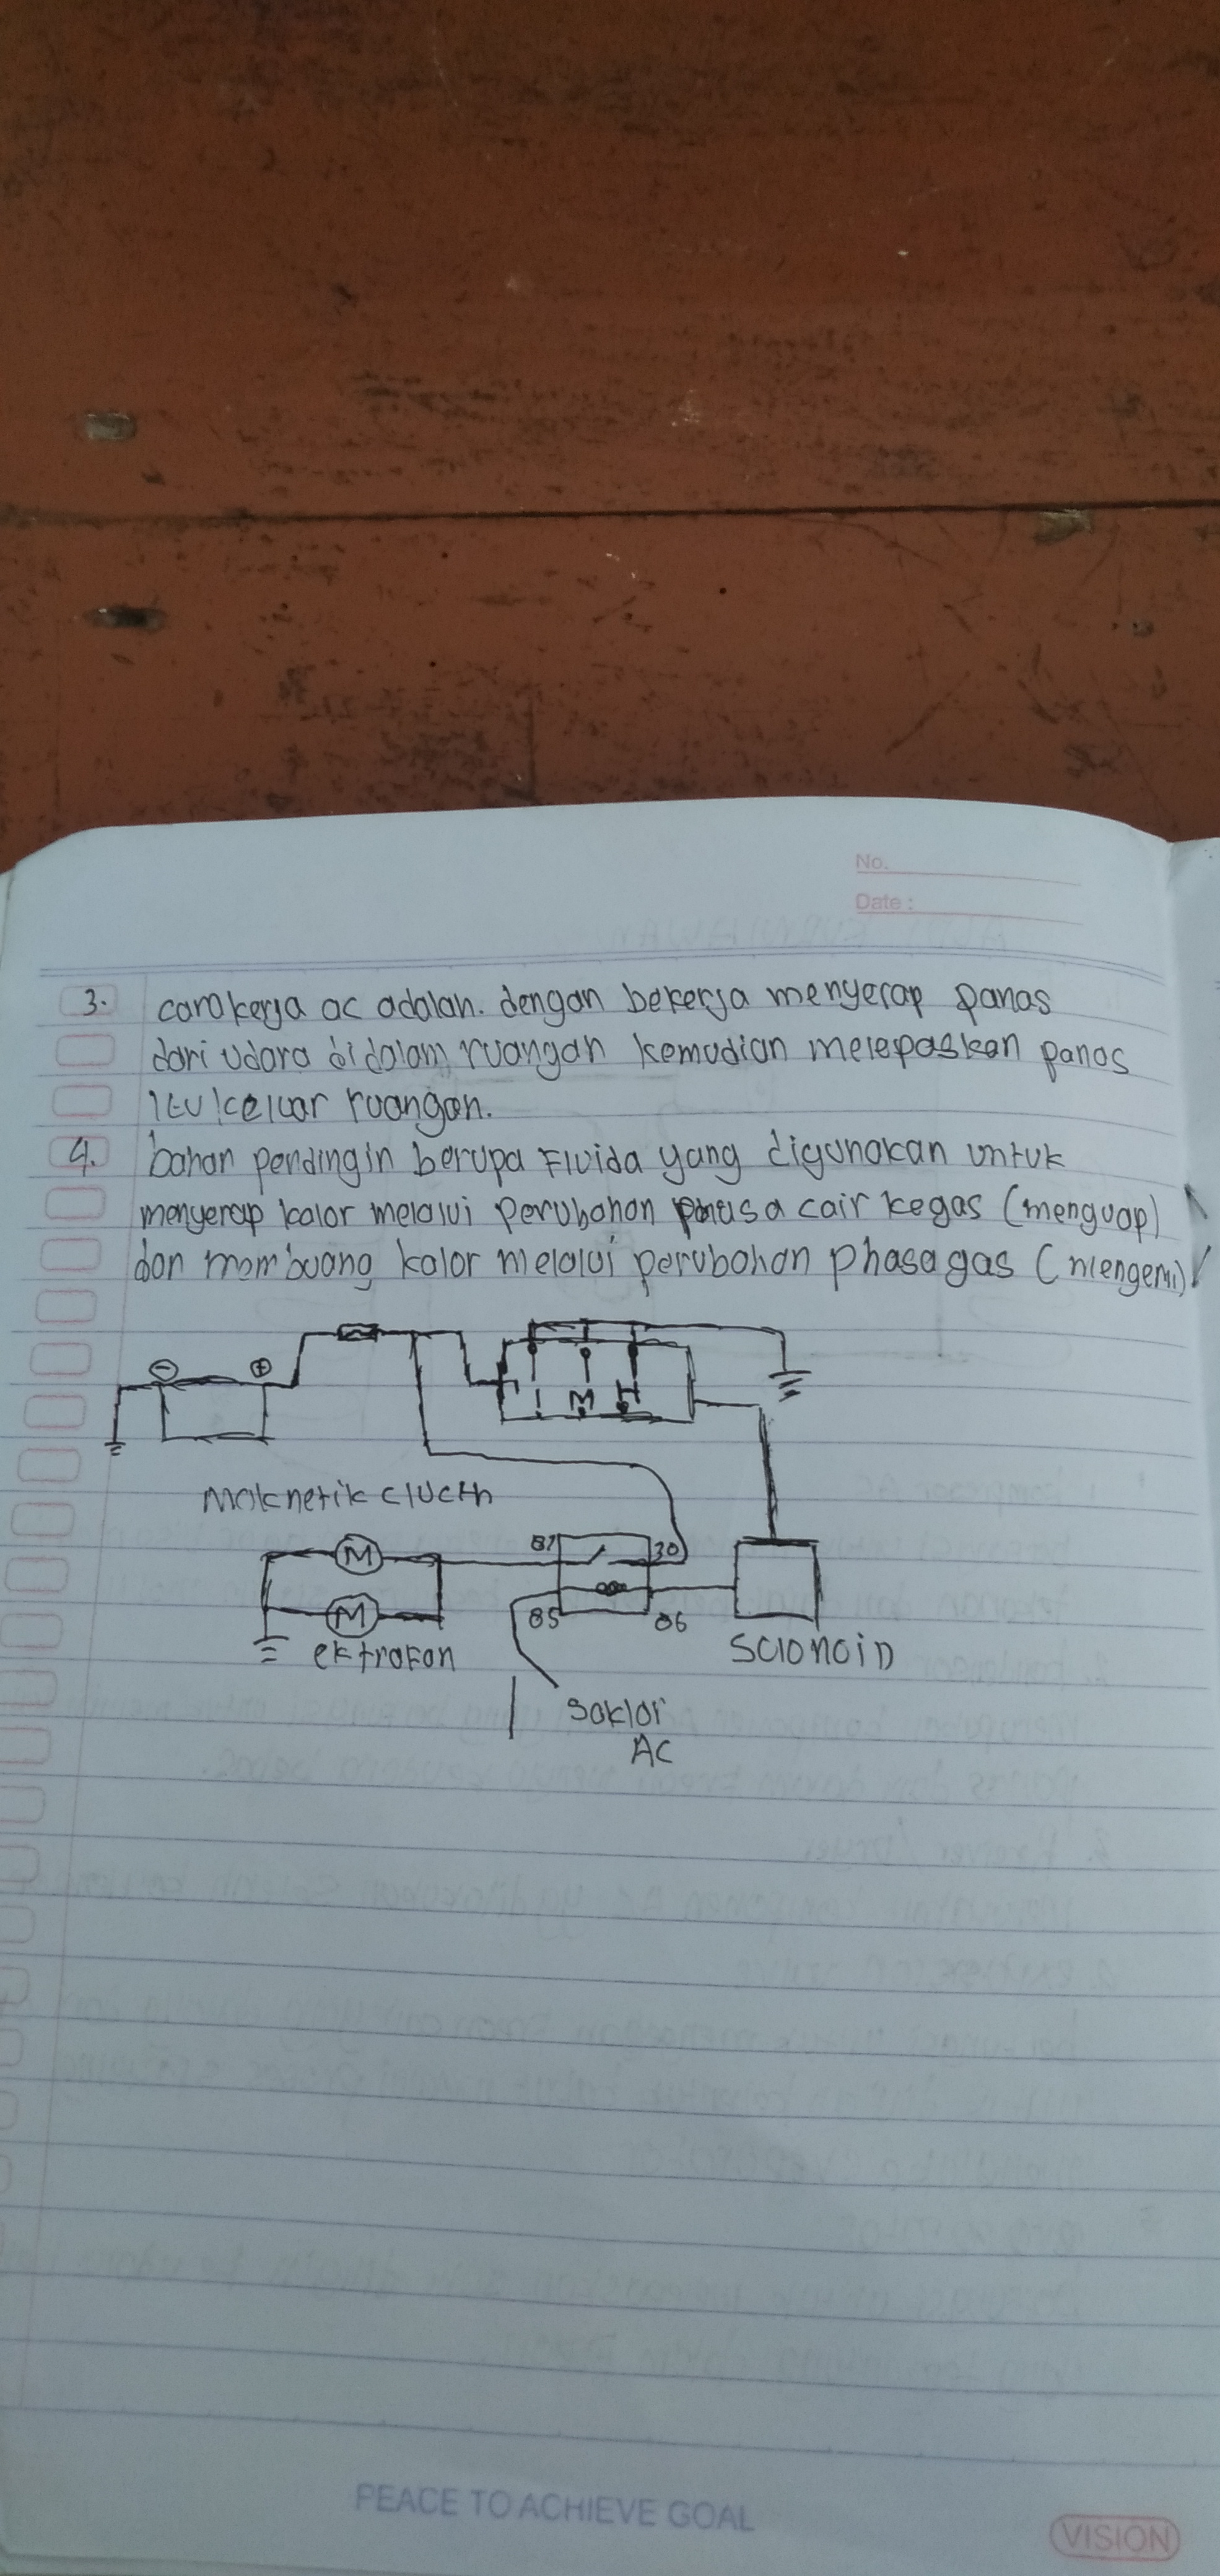 No.
Date :
3. carakerja ac adalah. dengan bekerja menyerap panas
dari udara didalam ruangan kemudian melepaskan panas
itu keluar ruangan.
4. bahan pendingin berupa Fluida yang digunakan untuk
menyerap kalor melalui perubahan phasa cair kegas (menguap)
dan membuang kalor melalui perubahan phasa gas (mengem)
- +
M H
Maknetik clucth
M 87 30
M 85 86
ektrafan
Solonoid
Saklar
AC
PEACE TO ACHIEVE GOAL
VISION